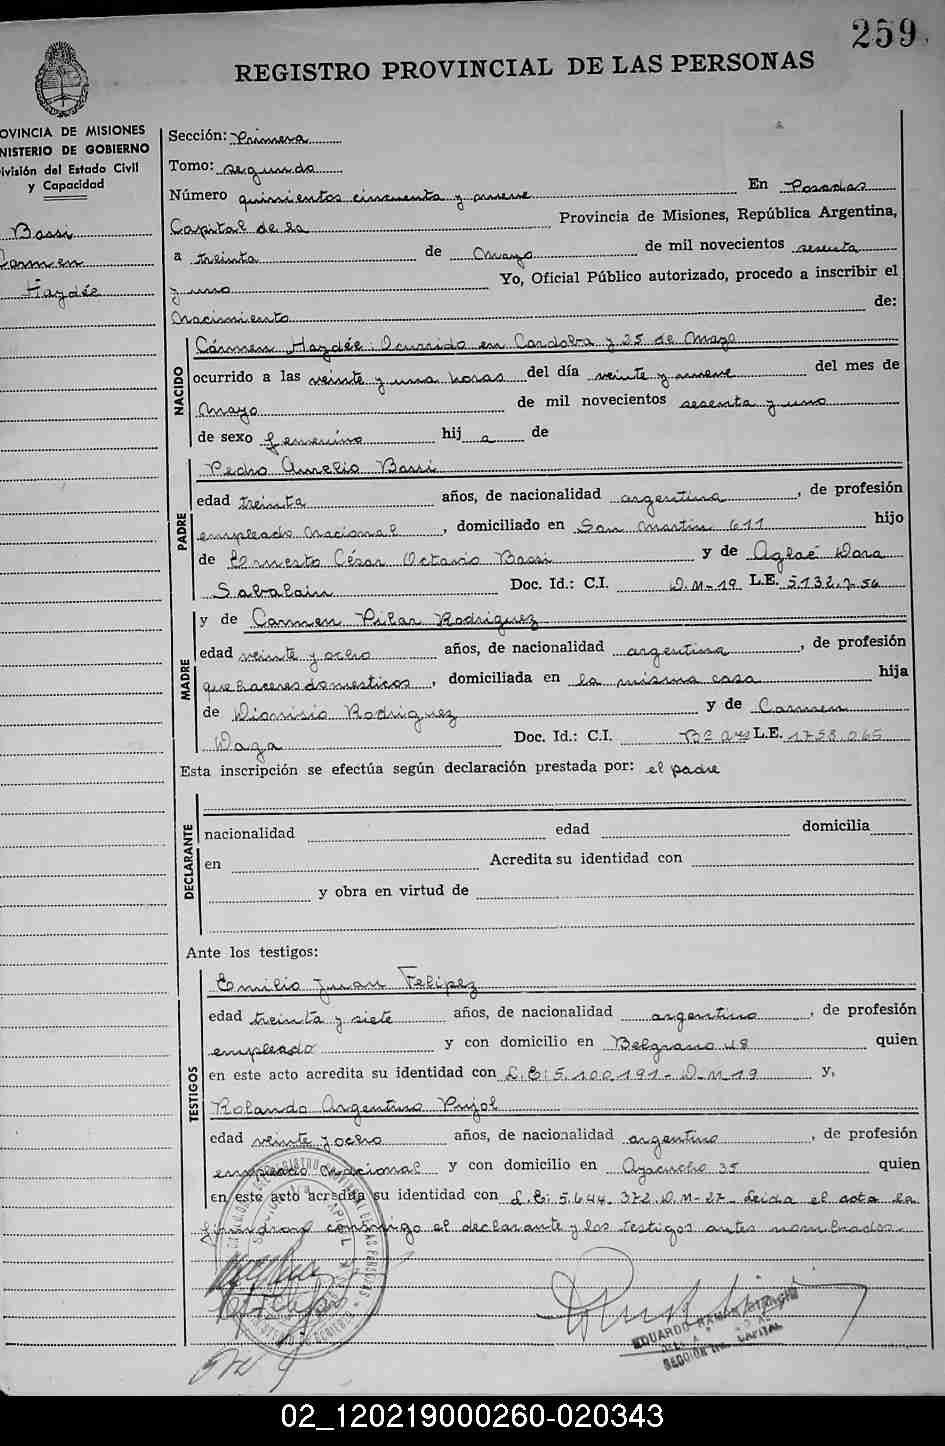 259
REGISTRO PROVINCIAL DE LAS PERSONAS
OVINCIA DE MISIONES
NISTERIO DE GOBIERNO
ivisión del Estado Civil
y Capacidad
Bassi
Carmen
Haydée
Sección: Primera
Tomo: segundo
Número quinientos cincuenta y nueve En Posadas
Capital de la Provincia de Misiones, República Argentina,
a treinta de Mayo de mil novecientos sesenta
y uno Yo, Oficial Público autorizado, procedo a inscribir el
Nacimiento de:
NACIDO
Cármen Haydée: Ocurrido en Cordoba y 25 de Mayo
ocurrido a las veinte y una horas del día veinte y nueve del mes de
Mayo de mil novecientos sesenta y uno
de sexo femenino hij a de
PADRE
Pedro Aurelio Bassi
edad treinta años, de nacionalidad argentina, de profesión
empleado Nacional, domiciliado en San Martin 611 hijo
de Ernesto César Octavio Bassi y de Aglaé Dora
Doc. Id.: C.I. D.M-19 L.E. 5132.756
MADRE
y de Carmen Pilar Rodriguez
edad veinte y ocho años, de nacionalidad argentina, de profesión
quehaceres domesticos, domiciliada en la misma casa hija
de Dionisio Rodriguez y de Carmen
Doc. Id.: C.I. Bs Ares L.E. 1758.065
Esta inscripción se efectúa según declaración prestada por: el padre
DECLARANTE
nacionalidad edad domicilia
en Acredita su identidad con
y obra en virtud de
Ante los testigos:
TESTIGOS
Emilio Juan Felipez
edad treinta y siete años, de nacionalidad argentino, de profesión
empleado y con domicilio en Belgrano 48 quien
en este acto acredita su identidad con L.E: 5.100.191-D-M 19 y,
Rolando Argentino Pujol
edad veinte y ocho años, de nacionalidad argentino, de profesión
empleado Nacional y con domicilio en Ayacucho 35 quien
en este acto acredita su identidad con L.E: 5.644.372. D.M-27- Leida el acta la
firmaron conmigo el declarante y los testigos antes nombrados.-
EDUARDO RAMON
SECCION CAPITAL
02_120219000260-020343